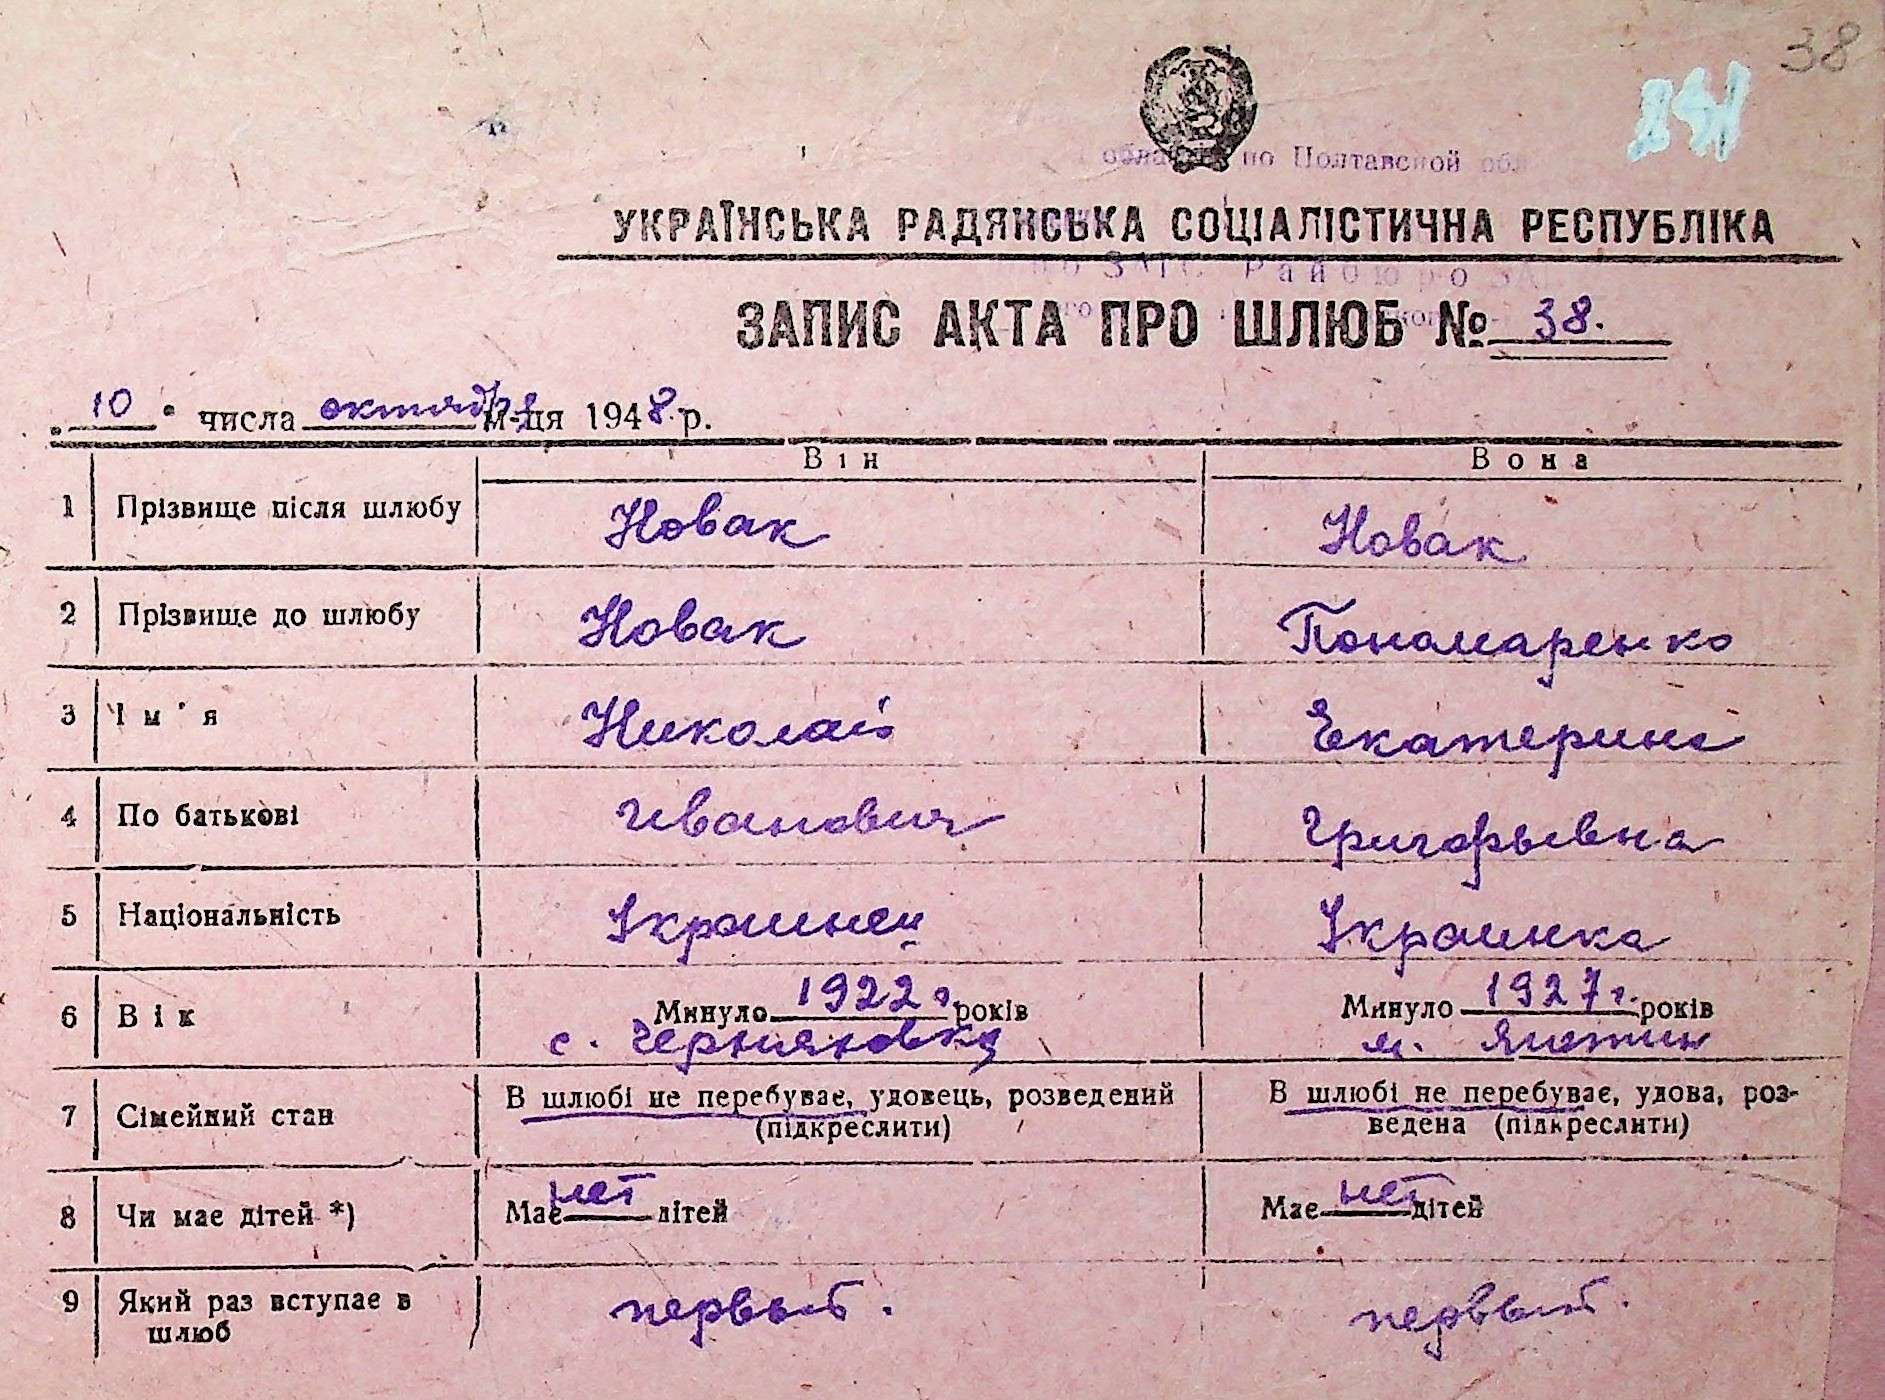 38
по Полтавской обл
УКРАЇНСЬКА РАДЯНСЬКА СОЦІАЛІСТИЧНА РЕСПУБЛІКА
ЗАГС Райбюро ЗА
ЗАПИС АКТА ПРО ШЛЮБ № 38.
„10" числа октября м-ця 1948 р.
Він Вона
1 Прізвище після шлюбу Новак Новак
2 Прізвище до шлюбу Новак Пономаренко
3 Ім'я Николай Екатерина
4 По батькові Иванович Григорьевна
5 Національність Украинец Украинка
6 Вік Минуло 1922 г. років Минуло 1927 г. років
с. Черняховка м.
7 Сімейний стан В шлюбі не перебуває, удовець, розведений (підкреслити) В шлюбі не перебуває, удова, роз-
ведена (підкреслити)
8 Чи має дітей *) Має нет дітей Має нет дітей
9 Який раз вступає в первый. первый.
шлюб